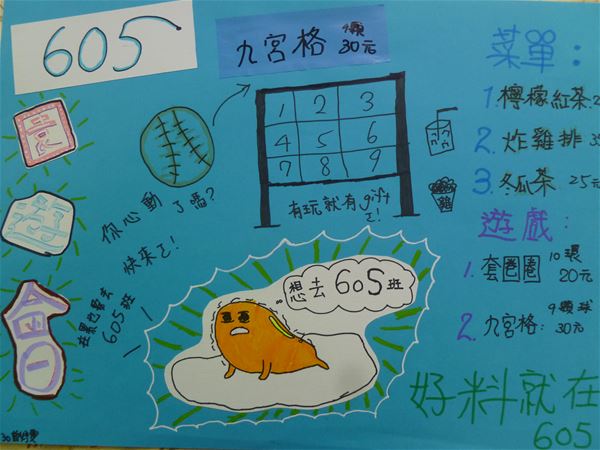 605
九宮格 9顆
30元
園
遊
會
1 2 3
4 5 6
7 8 9
有玩就有gift
你心動了嗎?
快來!
蛋黃也要去
605班
想去605班
菜單:
1.檸檬紅茶
2.炸雞排
3.冬瓜茶 25元
遊戲:
1.套圈圈 10環
20元
2.九宮格: 9顆球
30元
好料就在
605